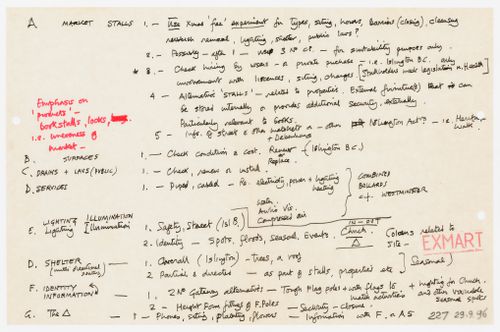 A MARKET STALLS 1. — Use Xmas 'free' experiment for types, siting, hours, (closing), cleansing
rubbish removal, lighting, shelter, public lavs?
2. — Possibly — after 1 — use 3 No — for suitability purposes only.
* 3. — Check hiring by users — a private purchase — i.e. Islington B.C. only
involvement with licences, siting, changes. [Stallholders meet legislation re. Health]
4 — Alternative 'STALLS' — related to properties. External furniture(s) that can
be stored internally or provides additional security, externally.
Particularly relevant to books.
Emphasis on
'products' —
bookstalls, looks,
i.e. uniqueness of
market —
5 — Info. of street & other markets + on — other Islington
B. SURFACES — 1. — Check condition & cost. Renew or Replace. (Islington B.C.)
C. DRAINS + LAVS (PUBLIC) 1. — Check, renew or install.
D. SERVICES 1. — Piped, cabled — Re. electricity, power + lighting
heating
Water.
Audio Vis.
Compressed air
COMBINED
BOLLARDS
c.f. WESTMINSTER
E. LIGHTING ILLUMINATION
Lighting Illumination
1. Safety, Street (ISLB.)
2. Identity — Spots, floods, seasonal, Events,
Church
△
Colours related to
Site —
EXMART
D. SHELTER —
1. — Overall (Islington) — Trees, a roof
2 Partial & directed — as part of stalls, properties etc
(Seasonal)
F. IDENTITY
INFORMATION
1 — 2 No Gateway alternatives — Tough flag poles + with flags to + lighting for Church
and other variable
seasonal spots
2 — Height from fittings of F. Poles — Security — closure
G. The △ — 1 — Phones, siting, planting, flowers — Information with F. on A5
227 29.9.96